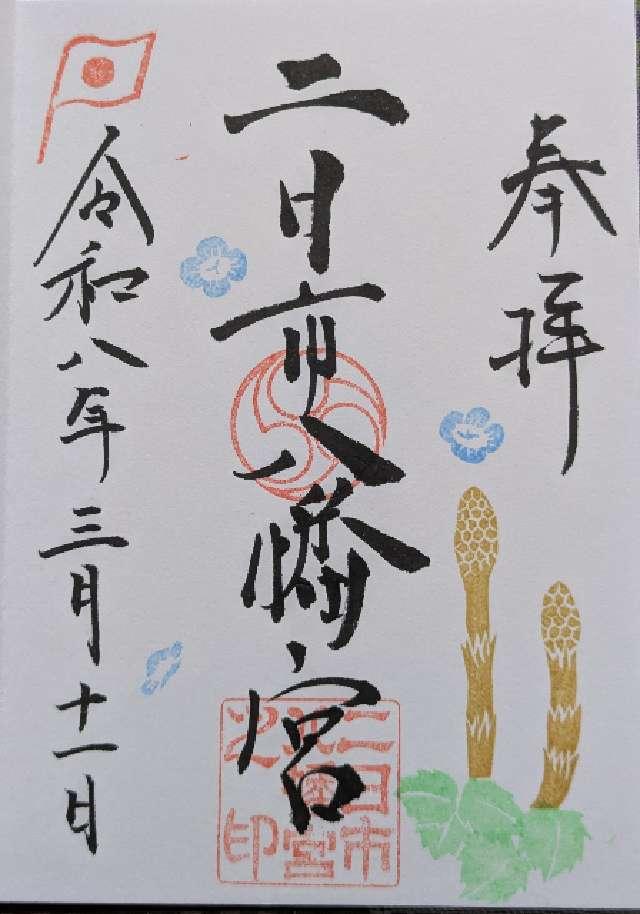 奉拝
二日市八幡宮
二日市八幡宮之印
令和八年三月十一日